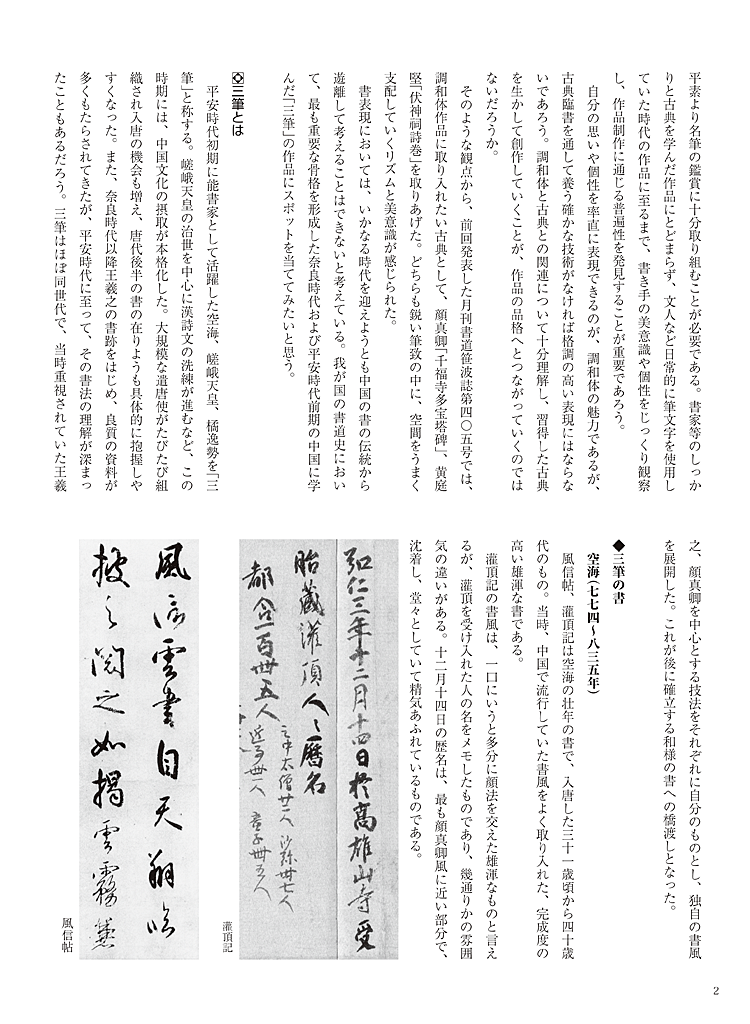 平素より名筆の鑑賞に十分取り組むことが必要である。書家等のしっか
りと古典を学んだ作品にとどまらず、文人など日常的に筆文字を使用し
ていた時代の作品に至るまで、書き手の美意識や個性をじっくり観察
し、作品制作に通じる普遍性を発見することが重要であろう。
自分の思いや個性を率直に表現できるのが、調和体の魅力であるが、
古典臨書を通して養う確かな技術がなければ格調の高い表現にはならな
いであろう。調和体と古典との関連について十分理解し、習得した古典
を生かして創作していくことが、作品の品格へとつながっていくのでは
ないだろうか。
そのような観点から、前回発表した月刊書道笹波誌第四〇五号では、
調和体作品に取り入れたい古典として、顔真卿「千福寺多宝塔碑」、黄庭
堅「伏神祠詩巻」を取りあげた。どちらも鋭い筆致の中に、空間をうまく
支配していくリズムと美意識が感じられた。
書表現においては、いかなる時代を迎えようとも中国の書の伝統から
遊離して考えることはできないと考えている。我が国の書道史におい
て、最も重要な骨格を形成した奈良時代および平安時代前期の中国に学
んだ「三筆」の作品にスポットを当ててみたいと思う。
三筆とは
平安時代初期に能書家として活躍した空海、嵯峨天皇、橘逸勢を「三
筆」と称する。嵯峨天皇の治世を中心に漢詩文の洗練が進むなど、この
時期には、中国文化の摂取が本格化した。大規模な遣唐使がたびたび組
織され入唐の機会も増え、唐代後半の書の在りようも具体的に抱握しや
すくなった。また、奈良時代以降王羲之の書跡をはじめ、良質の資料が
多くもたらされてきたが、平安時代に至って、その書法の理解が深まっ
たこともあるだろう。三筆はほぼ同世代で、当時重視されていた王羲
之、顔真卿を中心とする技法をそれぞれに自分のものとし、独自の書風
を展開した。これが後に確立する和様の書への橋渡しとなった。
◆三筆の書
空海（七七四～八三五年）
風信帖、灌頂記は空海の壮年の書で、入唐した三十一歳頃から四十歳
代のもの。当時、中国で流行していた書風をよく取り入れた、完成度の
高い雄渾な書である。
灌頂記の書風は、一口にいうと多分に顔法を交えた雄渾なものと言え
るが、灌頂を受け入れた人の名をメモしたものであり、幾通りかの雰囲
気の違いがある。十二月十四日の歴名は、最も顔真卿風に近い部分で、
沈着し、堂々としていて精気あふれているものである。
弘仁三年十二月十四日於高雄山寺受
胎蔵灌頂人々暦名
都合一百卌五人
之中太僧廿二人 沙弥卅七人
近事卌一人 童子卌五人
灌頂記
風信雲書自天翔臨
披之閲之如掲雲霧
風信帖
2